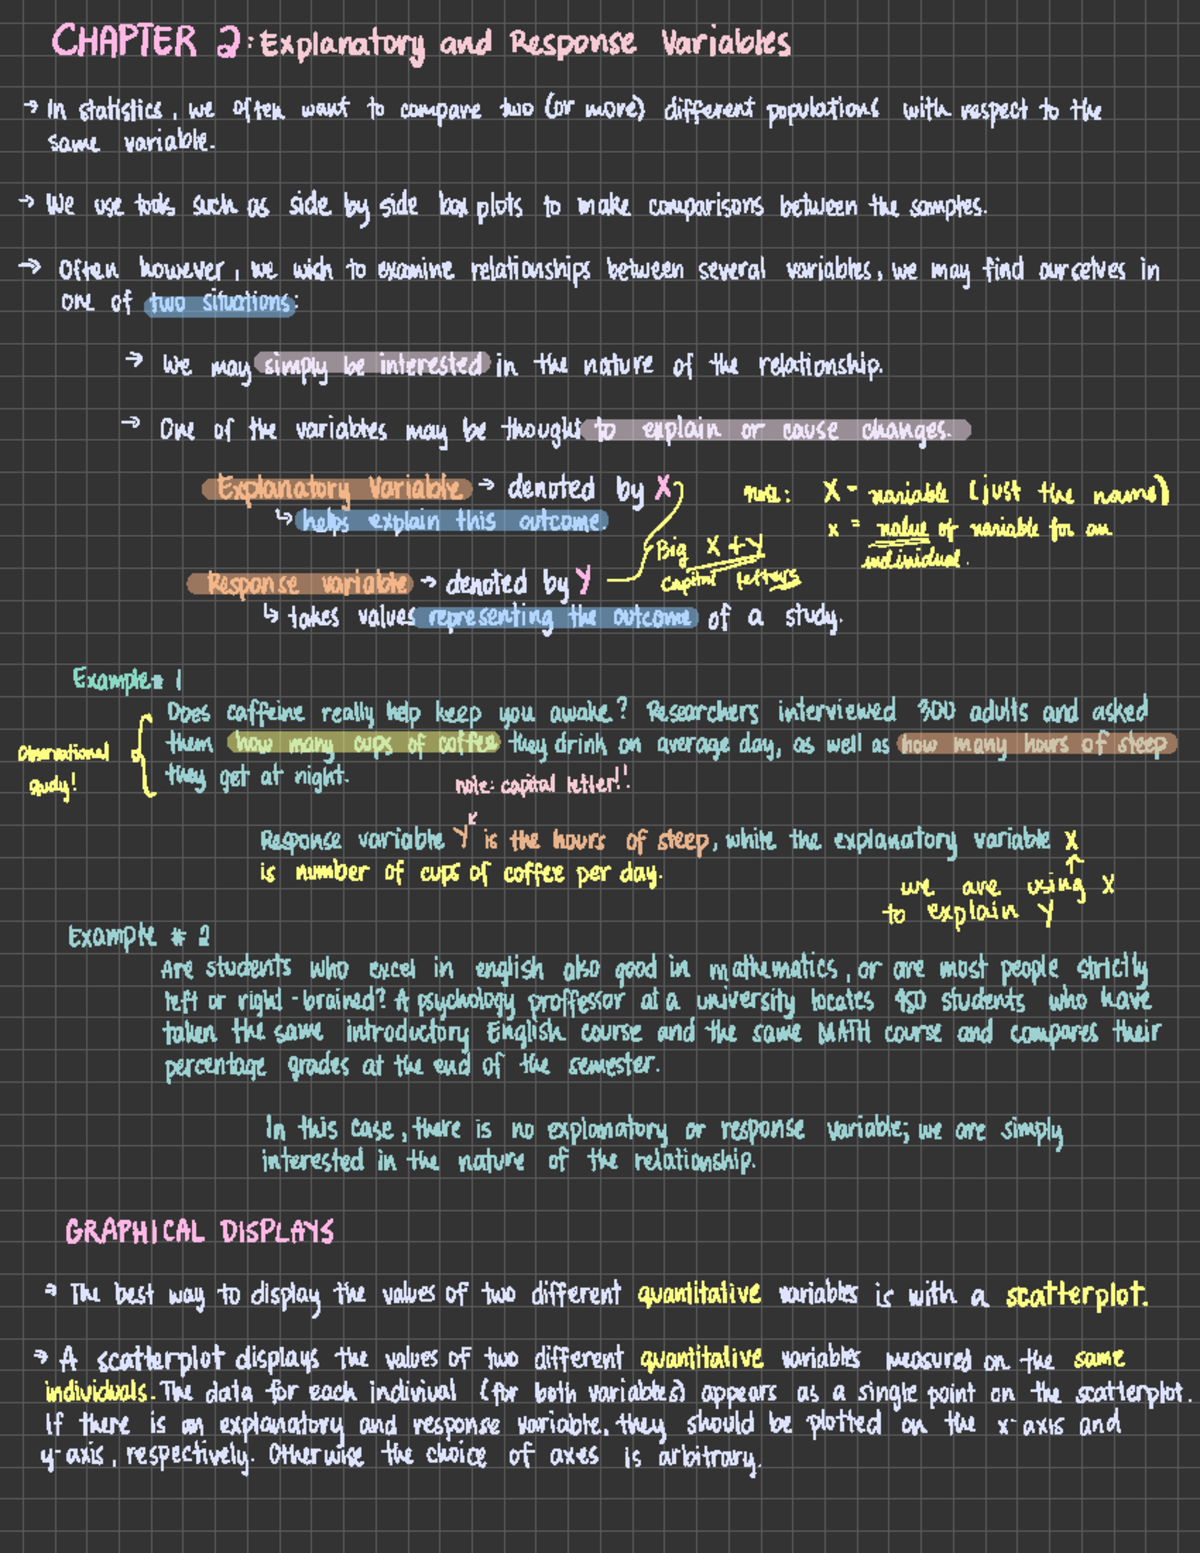 CHAPTER 2: Explanatory and Response Variables
→ In statistics, we often want to compare two (or more) different populations with respect to the
same variable.
→ We use tools such as side by side box plots to make comparisons between the samples.
→ Often however, we wish to examine relationships between several variables, we may find ourselves in
one of two situations:
→ We may simply be interested in the nature of the relationship.
→ One of the variables may be thought to explain or cause changes.
Explanatory Variable → denoted by X
↳ helps explain this outcome.
note: X - variable (just the name)
x = value of variable for an
individual.
Big X + Y
capital letters
Response variable → denoted by Y
↳ takes values representing the outcome of a study.
Example # 1
Does caffeine really help keep you awake? Researchers interviewed 300 adults and asked
them how many cups of coffee they drink on average day, as well as how many hours of sleep
they get at night.
Observational
study!
note: capital letter!!
Response variable Y is the hours of sleep, while the explanatory variable X
is number of cups of coffee per day.
we are using X
to explain Y
Example # 2
Are students who excel in english also good in mathematics, or are most people strictly
left or right-brained? A psychology proffessor at a university locates 450 students who have
taken the same introductory English course and the same MATH course and compares their
percentage grades at the end of the semester.
In this case, there is no explanatory or response variable; we are simply
interested in the nature of the relationship.
GRAPHICAL DISPLAYS
→ The best way to display the values of two different quantitative variables is with a scatterplot.
→ A scatterplot displays the values of two different quantitative variables measured on the same
individuals. The data for each indivival (for both variables) appears as a single point on the scatterplot.
If there is an explanatory and response variable, they should be plotted on the x-axis and
y-axis, respectively. Otherwise the choice of axes is arbitrary.